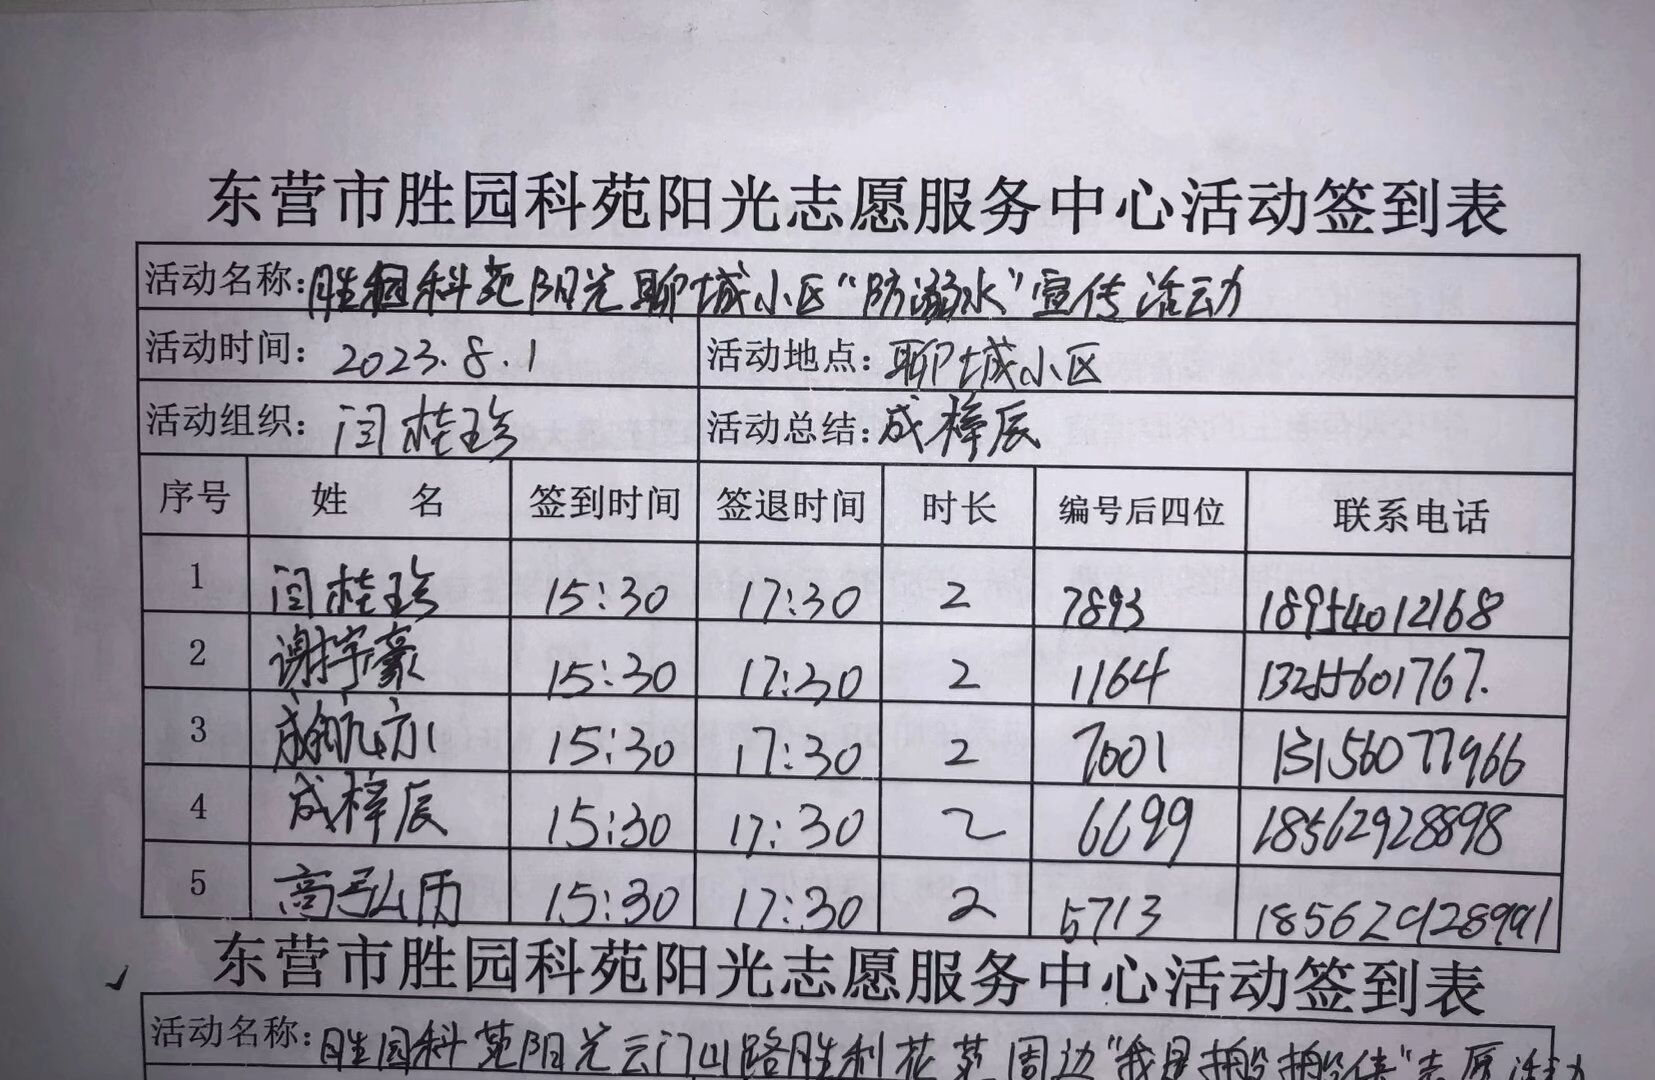 东营市胜园科苑阳光志愿服务中心活动签到表
活动名称:胜园科苑阳光聊城小区“防溺水”宣传活动
活动时间: 2023.8.1 活动地点:聊城小区
活动组织: 闫桂珍 活动总结:成梓辰
序号 姓 名 签到时间 签退时间 时长 编号后四位 联系电话
1 闫桂珍 15:30 17:30 2 7893 18954012168
2 谢宇豪 15:30 17:30 2 1164 13255601767.
3 成航 15:30 17:30 2 7001 13156077966
4 成梓辰 15:30 17:30 2 6699 18562928898
5 高 15:30 17:30 2 5713 18562928991
东营市胜园科苑阳光志愿服务中心活动签到表
活动名称:胜园科苑阳光云门山路胜利花苑周边“我是搬搬侠”志愿活动